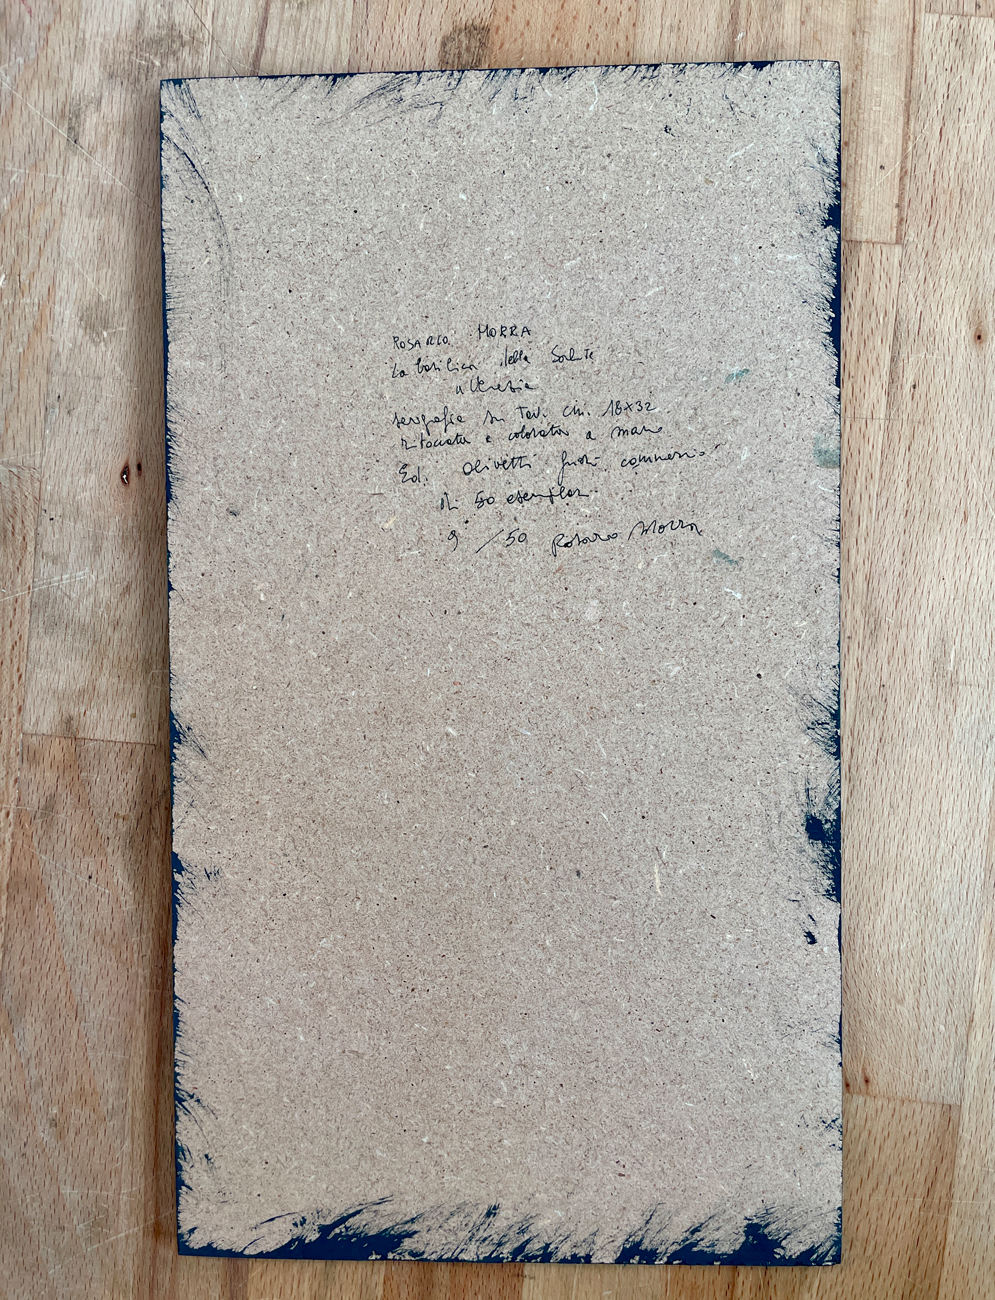 ROSARIO MORRA
La basilica della Salute
a Venezia
serigrafia su Tav. cm. 18x32
ritoccata e colorata a mano
Ed. Olivetti fuori commercio
di 50 esemplari
9/50 Rosario Morra